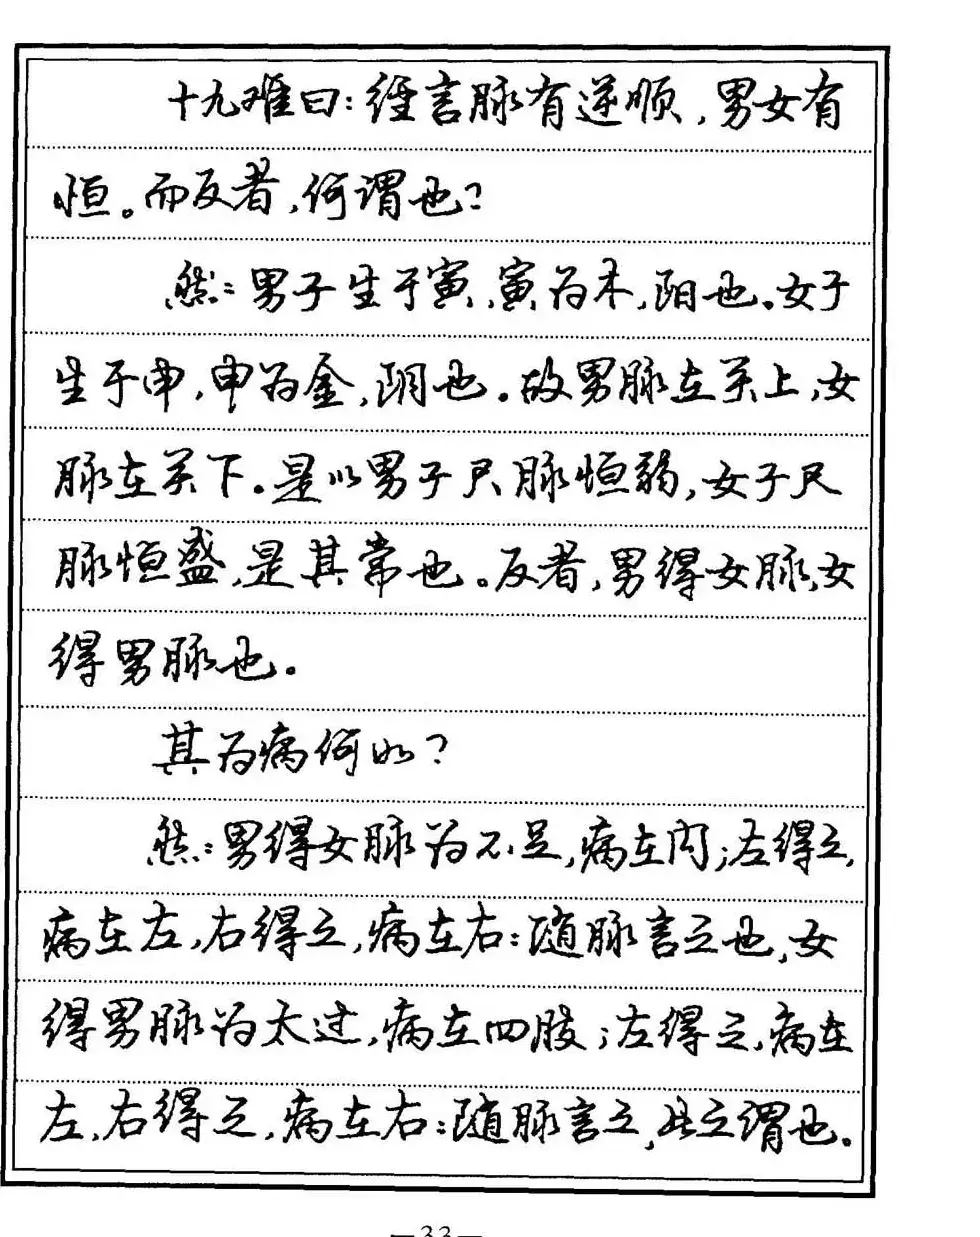 十九难曰：经言脉有逆顺，男女有
恒。而反者，何谓也？
然：男子生于寅，寅为木，阳也。女子
生于申，申为金，阴也。故男脉在关上，女
脉在关下。是以男子尺脉恒弱，女子尺
脉恒盛，是其常也。反者，男得女脉，女
得男脉也。
其为病何如？
然：男得女脉为不足，病在内；左得之，
病在左，右得之，病在右：随脉言之也，女
得男脉为太过，病在四肢；左得之，病在
左，右得之，病在右：随脉言之，此之谓也。
—33—